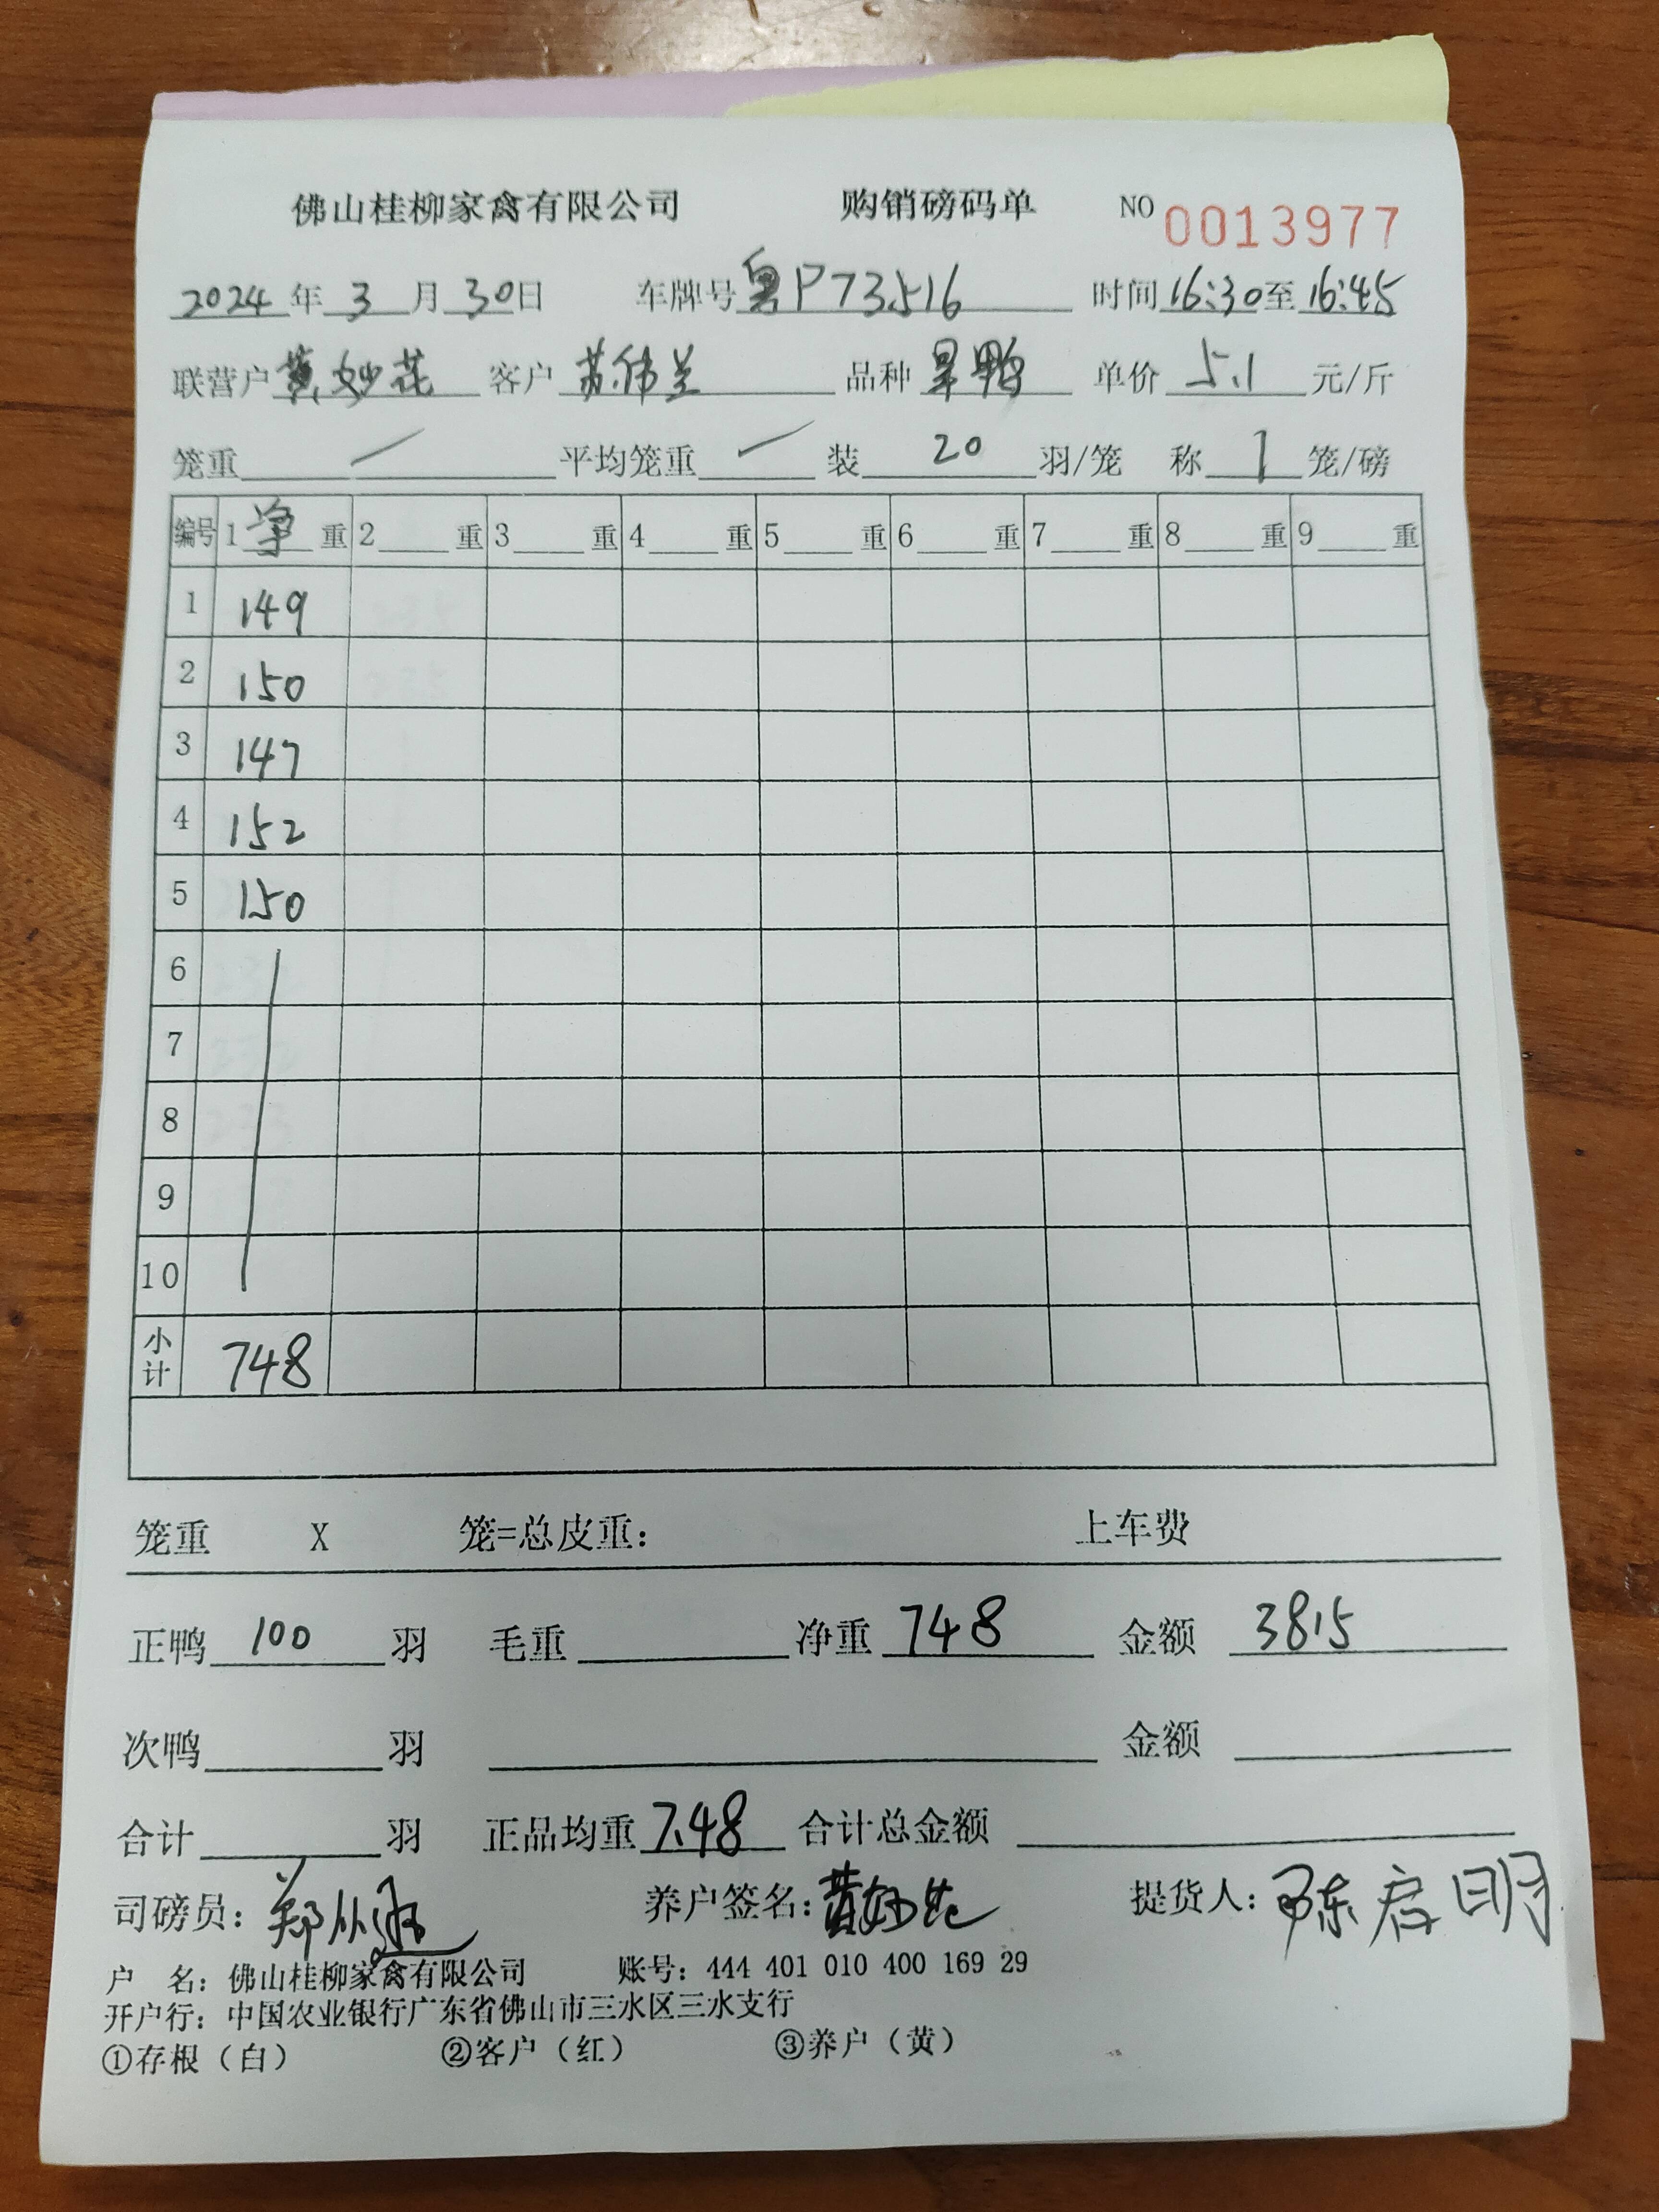 佛山桂柳家禽有限公司 购销磅码单 NO 0013977
2024 年 3 月 30 日 车牌号 粤P73516 时间 16:30 至 16:45
联营户 黄妙花 客户 苏伟兰 品种 旱鸭 单价 5.1 元/斤
笼重 / 平均笼重 / 装 20 羽/笼 称 1 笼/磅
编号 1 净 重 2 重 3 重 4 重 5 重 6 重 7 重 8 重 9 重
1 149
2 150
3 147
4 152
5 150
6
7
8
9
10
小计 748
笼重 X 笼=总皮重: 上车费
正鸭 100 羽 毛重 净重 748 金额 3815
次鸭 羽 金额
合计 羽 正品均重 7.48 合计总金额
司磅员: 郑 养户签名: 黄妙花 提货人: 陈启明
户 名: 佛山桂柳家禽有限公司 账号: 444 401 010 400 169 29
开户行: 中国农业银行广东省佛山市三水区三水支行
①存根（白） ②客户（红） ③养户（黄）